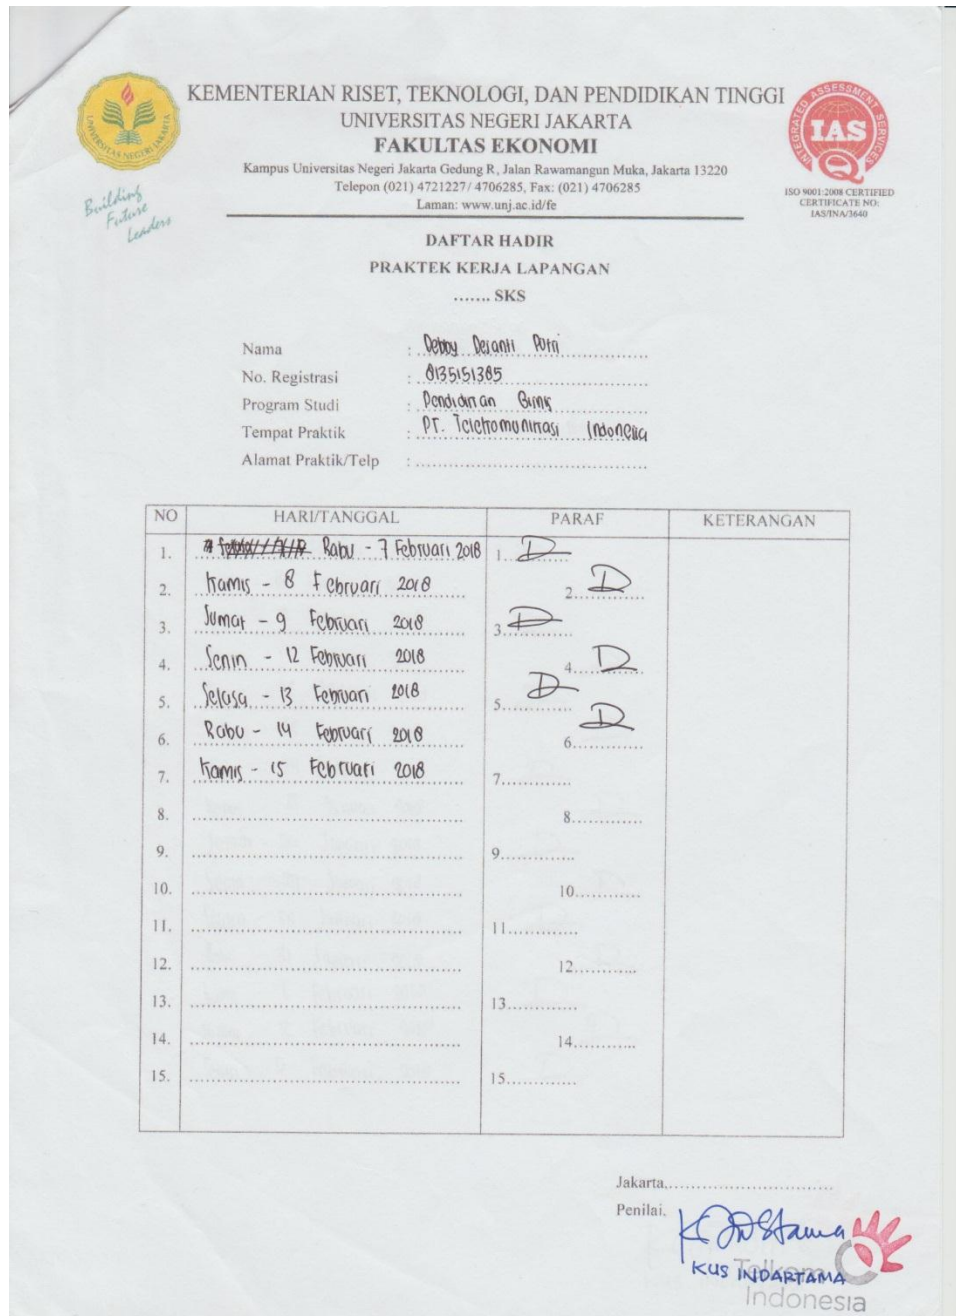 KEMENTERIAN RISET, TEKNOLOGI, DAN PENDIDIKAN TINGGI
UNIVERSITAS NEGERI JAKARTA
FAKULTAS EKONOMI
Kampus Universitas Negeri Jakarta Gedung R, Jalan Rawamangun Muka, Jakarta 13220
Telepon (021) 4721227/ 4706285, Fax: (021) 4706285
Laman: www.unj.ac.id/fe
UNIVERSITAS NEGERI JAKARTA
Building
Future
Leaders
INTEGRATED ASSESSMENT SERVICES
IAS
ISO 9001:2008 CERTIFIED
CERTIFICATE NO:
IAS/INA/3640
DAFTAR HADIR
PRAKTEK KERJA LAPANGAN
....... SKS
Nama : Debby Desanti Putri
No. Registrasi : 8135151385
Program Studi : Pendidikan Bisnis
Tempat Praktik : PT. Telekomunikasi Indonesia
Alamat Praktik/Telp :
NO HARI/TANGGAL PARAF KETERANGAN
1. Rabu - 7 Februari 2018 1.
2. Kamis - 8 Februari 2018 2.
3. Jumat - 9 Februari 2018 3.
4. Senin - 12 Februari 2018 4.
5. Selasa - 13 Februari 2018 5.
6. Rabu - 14 Februari 2018 6.
7. Kamis - 15 Februari 2018 7.
8. 8.
9. 9.
10. 10.
11. 11.
12. 12.
13. 13.
14. 14.
15. 15.
Jakarta,
Penilai,
KUS INDARTAMA
Telkom
Indonesia